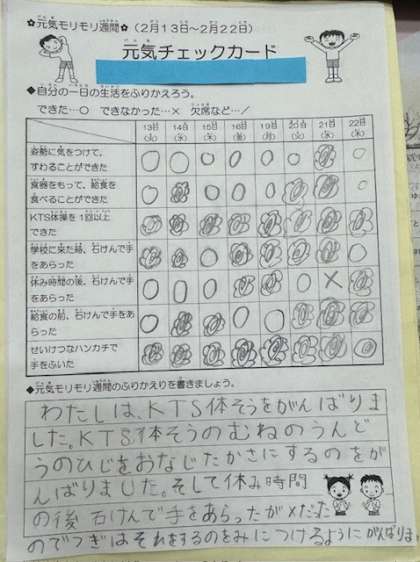 ✿元気モリモリ週間✿（2月13日〜2月22日）
元気チェックカード
◆自分の一日の生活をふりかえろう。
できた…○　できなかった…×　欠席など…／
13日 14日 15日 16日 19日 20日 21日 22日
(火) (水) (木) (金) (月) (火) (水) (木)
姿勢に気をつけて、
すわることができた
食器をもって、給食を
食べることができた
KTS体操を1回以上
できた
学校に来た時、石けんで手
をあらった
休み時間の後、石けんで手
をあらった
給食の前、石けんで手をあ
らった
せいけつなハンカチで
手をふいた
◆元気モリモリ週間のふりかえりを書きましょう。
わたしは、KTS体そうをがんばりま
した。KTS体そうのむねのうんど
うのひじをおなじたかさにするのをが
んばりました。そして休み時間
の後石けんで手をあらったが×だった
のでつぎはそれをするのをみにつけるようにがんばりま